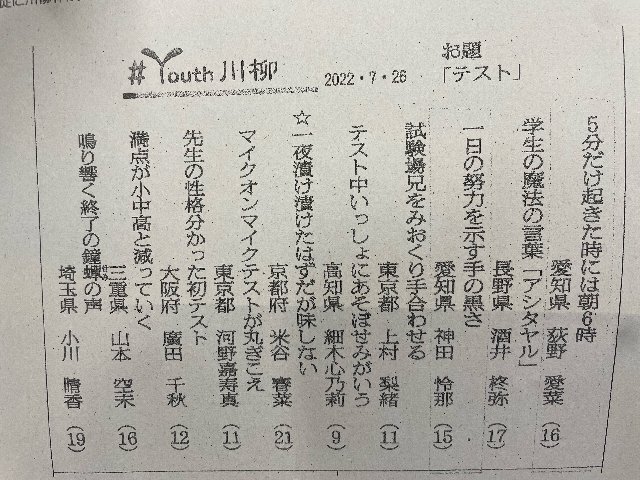 #Youth川柳
2022・7・26
お題
「テスト」
5分だけ起きた時には朝6時
愛知県 荻野 愛菜 (16)
学生の魔法の言葉「アシタヤル」
長野県 酒井 柊弥 (17)
一日の努力を示す手の黒さ
愛知県 神田 怜那 (15)
試験場兄をみおくり手合わせる
東京都 上村 梨緒 (11)
テスト中いっしょにあそぼせみがいう
高知県 細木心乃莉 (9)
☆一夜漬け漬けたはずだが味しない
京都府 米谷 春菜 (21)
マイクオンマイクテストが丸ぎこえ
東京都 河野嘉寿真 (11)
先生の性格分かった初テスト
大阪府 廣田 千秋 (12)
満点が小中高と減っていく
三重県 山本 空未 (16)
鳴り響く終了の鐘蟬の声
埼玉県 小川 晴香 (19)